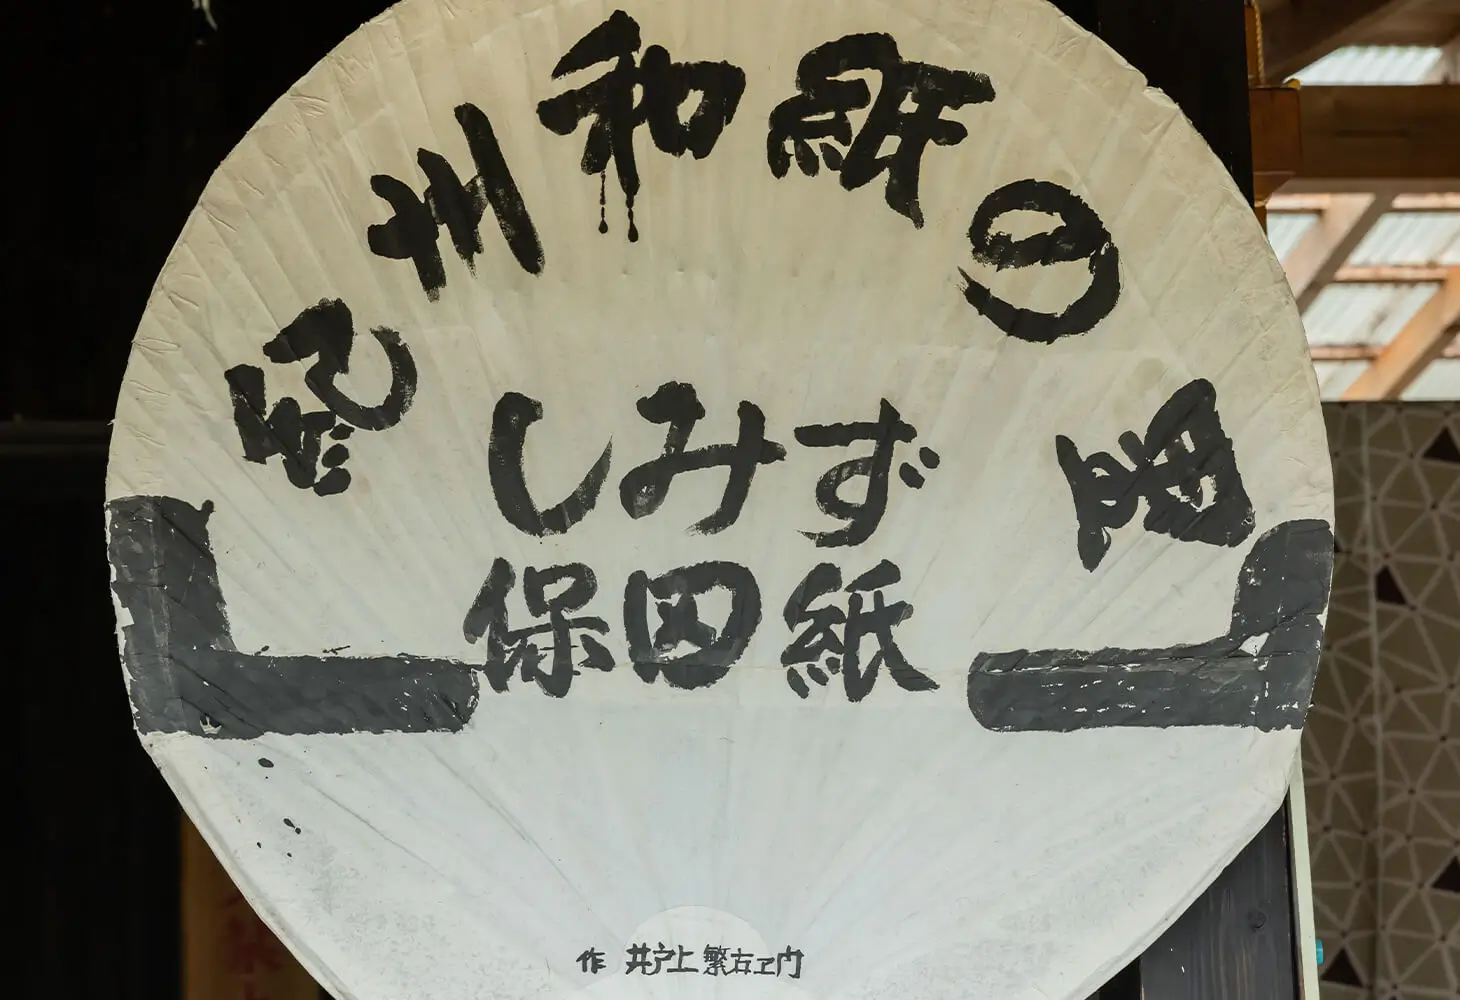 紀州和紙の里
しみず
保田紙
作 井戸上 繁右ヱ門